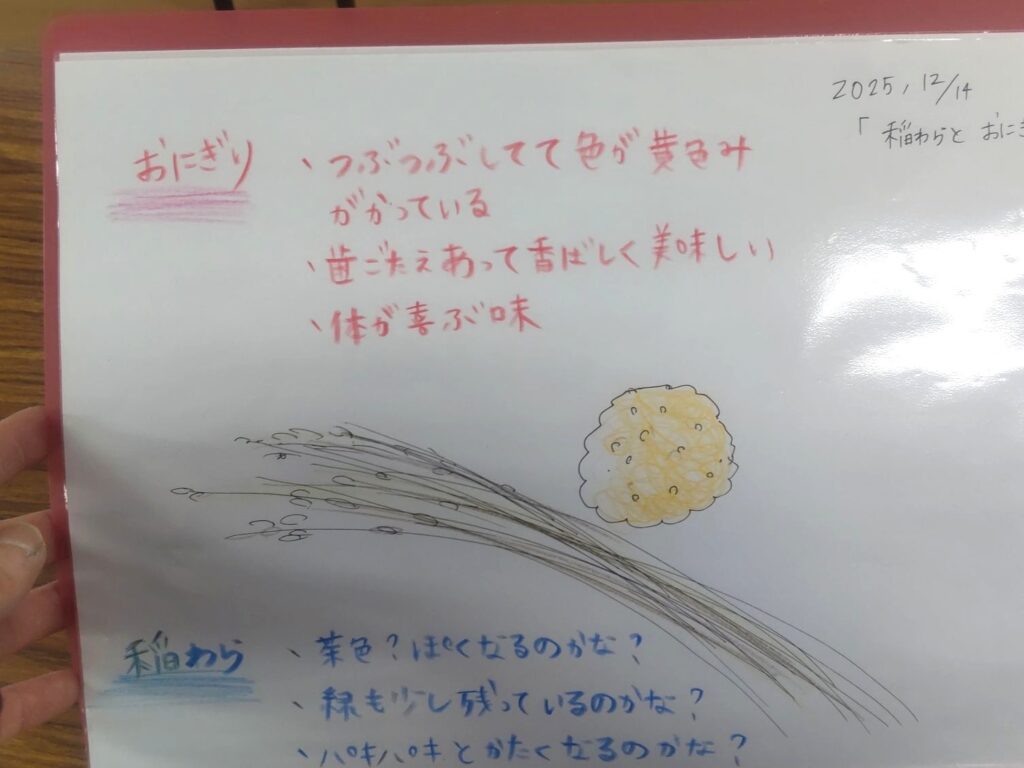 2025, 12/14
「稲わらとおに
おにぎり
、つぶつぶしてて色が黄色み
がかっている
、歯ごたえあって香ばしく美味しい
、体が喜ぶ味
稲わら
、茶色?ぽくなるのかな?
、緑も少し残っているのかな?
、パキパキとかたくなるのかな?